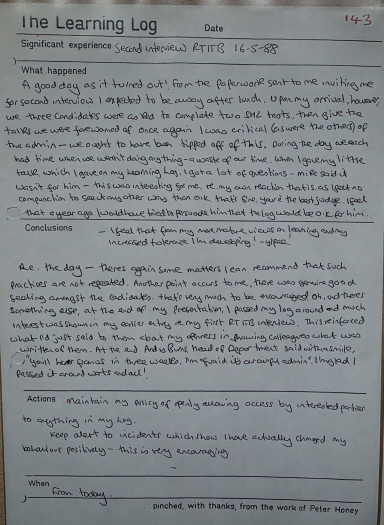 The Learning Log
Date
143
Significant experience Second interview RTITB 16-5-88
What happened
A good day as it turned out! From the paperwork sent to me inviting me
for second interview I expected to be away after lunch. Upon my arrival, however,
we three candidates were asked to complete two SHL tests, then give the
talks we were forewarned of. Once again I was critical (as were the others) of
the admin – we ought to have been tipped off of this. During the day we each
had time when we weren't doing anything – a waste of our time. When I gave my little
talk, which I gave on my Learning Log, I got a lot of questions – Mike said it
wasn't for him – this was interesting for me, re. my own reaction that is, as I feel no
compunction to see it any other way than O.K. that's fine, you're the best judge. I feel
that a year ago I would have tried to persuade him that the log would be O.K. for him.
Conclusions
– I feel that from my more mature views on learning and my
increased tolerance I'm developing! – yipee.
Re. the day – there's again some matters I can recommend that such
practices are not repeated. Another point occurs to me, there was genuine good
feeling amongst the candidates. that's very much to be encouraged. Oh, and there's
something else, at the end of my presentation, I passed my log around and much
interest was shown in my entire entry re my first RTITB interview. This reinforced
what I'd just said to them about my openness in showing colleagues what was
written of them. At the end Andy Burns, head of Department said with a smile,
"you'll hear from us in three weeks, I'm afraid it's our awful admin". I'm glad I
passed it around warts and all!
Actions Maintain my policy of openly allowing access by interested parties
to anything in my Log.
Keep alert to incidents which show I have actually changed my
behaviour positively – this is very encouraging.
When
From today.
pinched, with thanks, from the work of Peter Honey